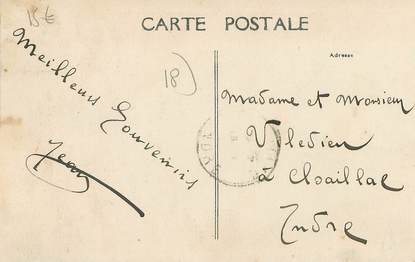 15€
CARTE POSTALE
18)
Adresse
Meilleurs Souvenirs
Jean
Madame et Monsieur
Viledieu
à Chaillac
Indre